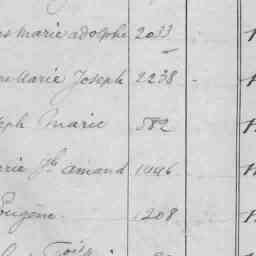 marie adolphe 2033
Marie Joseph 2238
eph Marie 582
rie Jh amand 1446
Eugène 1208